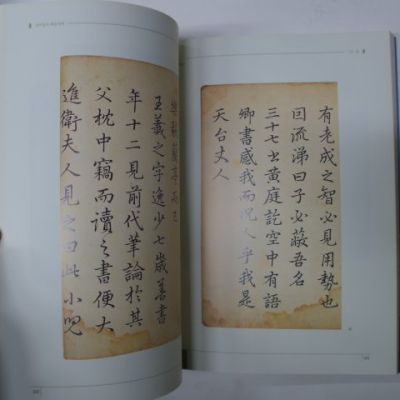 王羲之字逸少七歲善書
年十二見前代筆論於其
父枕中竊而讀之書便大
進衛夫人見之曰此小兒
有老成之智必見用勢也
囙流涕曰子必蔽吾名
三十七出黃庭訖空中有語
卿書感我而況人乎我是
天台丈人